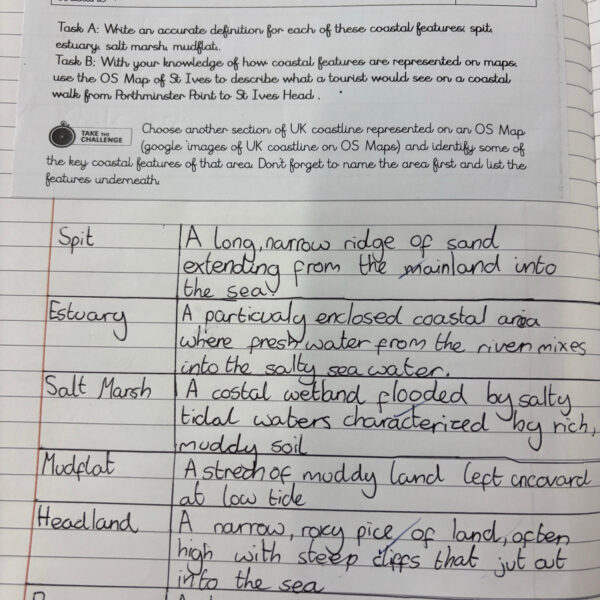 Task A: Write an accurate definition for each of these coastal features: spit,
estuary, salt marsh, mudflat.
Task B: With your knowledge of how coastal features are represented on maps,
use the OS Map of St Ives to describe what a tourist would see on a coastal
walk from Porthminster Point to St Ives Head.
TAKE THE
CHALLENGE
Choose another section of UK coastline represented on an OS Map
(google images of UK coastline on OS Maps) and identify some of
the key coastal features of that area. Don't forget to name the area first and list the
features underneath.
Spit
A long, narrow ridge of sand
extending from the mainland into
the sea.
Estuary
A particualy enclosed coastal area
where fresh water from the river mixes
into the salty sea water.
Salt Marsh
A costal wetland flooded by salty
tidal waters characterized by rich,
muddy soil
Mudflat
A strech of muddy land left uncovard
at low tide
Headland
A narrow, rocy pice of land, often
high with steep cliffs that jut out
into the sea